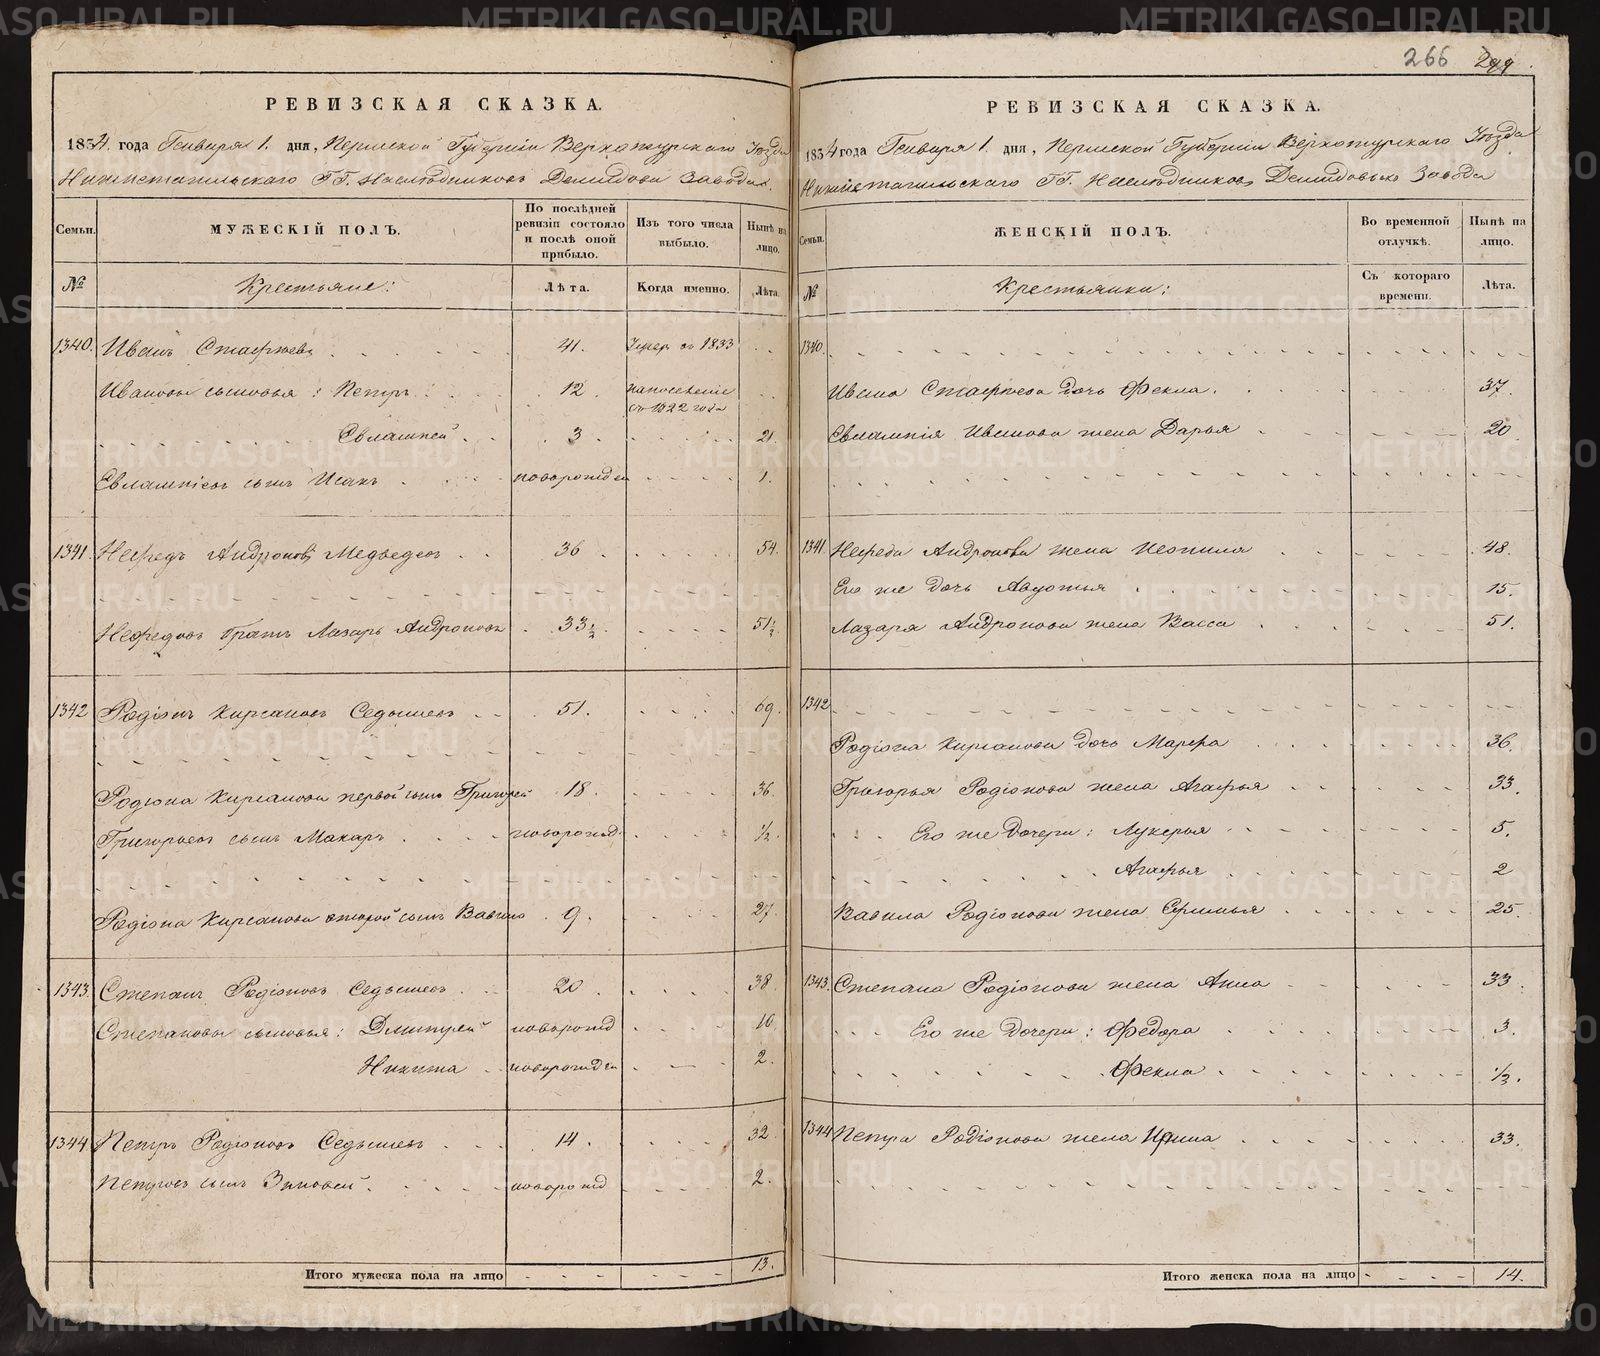 266 299
РЕВИЗСКАЯ СКАЗКА.
1834. года Генваря 1. дня, Пермской Губерніи Верхотурскаго Уѣзда
Нижнетагильскаго ГГ. Наслѣдниковъ Демидова Завода.
Семьи.
МУЖЕСКІЙ ПОЛЪ.
По послѣдней ревизіи состояло и послѣ оной прибыло.
Изъ того числа выбыло.
Нынѣ на лицо.
№
Крестьяне:
Лѣта.
Когда именно.
Лѣта.
1340. Иванъ Стафѣевъ 41. Умер въ 1833
Ивановы сыновья: Петръ 12.
съ 1822 года
Евлампей 3. 21.
Евлампіевъ сынъ Исакъ новорожден 1.
1341 Нефедъ Андроновъ Медведевъ 36 54.
Нефедовъ братъ Лазарь Андроновъ 33 1/2 51 1/2
1342 Родіонъ Кирсановъ Седышевъ 51. 69.
Родіона Кирсанова первой сынъ Григорей 18. 36.
Григорьевъ сынъ Макаръ новорожд. 1/2
Родіона Кирсанова второй сынъ Вавило 9. 27.
1343. Степанъ Родіоновъ Седышевъ 20 38.
Степановы сыновья: Дмитрей новорожд 10.
Никита новорожден 2.
1344 Петръ Родіоновъ Седышевъ 14. 32.
Петровъ сынъ Зиновей. новорожд 2.
Итого мужеска пола на лицо 13.
РЕВИЗСКАЯ СКАЗКА.
1834 года Генваря 1. дня, Пермской Губерніи Верхотурскаго Уѣзда
Нижнетагильскаго ГГ. Наслѣдниковъ Демидовыхъ Завода
Семьи.
ЖЕНСКІЙ ПОЛЪ.
Во временной отлучкѣ.
Нынѣ на лицо.
№
Крестьянки:
Съ котораго времени.
Лѣта.
1340.
Ивана Стафѣева дочь Фекла. 37.
Евлампія Иванова жена Дарья 20
1341. Нефеда Андронова жена Неонила 48.
Его же дочь Авдотья 15.
Лазаря Андронова жена Васса 51.
1342
Родіона Кирсанова дочь Марфа 36.
Григорья Родіонова жена Агафья 33.
Его же дочери: Лукерья 5.
Агафья 2
Вавила Родіонова жена Ефимья 25.
1343. Степана Родіонова жена Анна 33.
Его же дочери: Федора 3.
Фекла 1/2.
1344 Петра Родіонова жена Ирина 33.
Итого женска пола на лицо 14.
METRIKI.GASO-URAL.RU